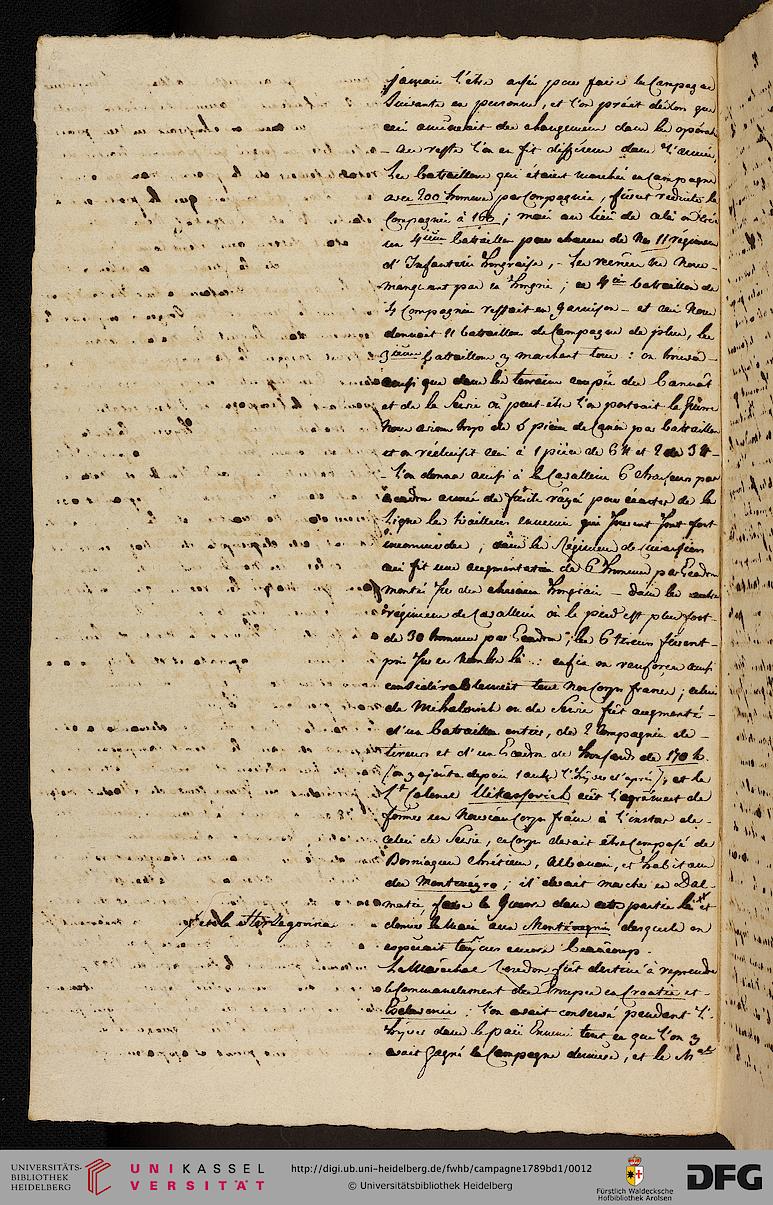 jamais l'être assés pour faire la Campagne
Suivante en personne, et l'on prévit dèslors que
ceci amèneroit des changemens dans les opérat
- au reste l'on en fit différens dans l'armée,
Les bataillons qui étaient marchés en Campagne
avec 200 hommes par Compagnie, furent reduits la
Compagnie à 160; mais au lieu de cela on créa
un 4ième bataillon pour chacun de Nos 11 régimens
d'Infanterie Hongroise, - Les recrües ne Nous
manquant pas en Hongrie; ce 4ie bataillon de
4 Compagnies restait en garnison - et ceci Nous
donnait 11 bataillons de Campagne de plus, les
3ièmes bataillons y marchant tous: on trouva -
aussi que dans les terrains coupés du Bannât
et de la Servie où peut-être l'on porterait la guerre
Nous avions trop de 6 pièces de Canon par bataillon
et on réduisit ceci à 1 pièce de 6 ℔ et 2 de 3 ℔ -
- l'on donna aussi à la Cavallerie 6 Chasseurs par
Escadron armés de fusils rayés pour écarter de la
ligne les tirailleurs ennemis qui Souvent Sont fort
incommodes; dans les Régimens de Cuirassiers
ceci fit une augmentation de 6 hommes par Escadron
montés Sur des chevaux hongrois - dans les autres
régimens de Cavallerie où le pied est plus fort -
de 30 hommes par Escadron, les 6 tireurs furent -
pris Sur ce Nombre là: enfin on renforça aussi
considérablement tous nos Corps francs; celui
de Mihalovich ou de Servie fût augmenté -
d'un bataillon entier, de 2 Compagnies de -
tireurs et d'un Escadron de houssards de 170 h.
(on y ajouta depuis 1 autre l'hyver d'après), et le
Lt Colonel Vukassovich eût l'agrément de
former un Nouveau Corps franc à l'instar de -
celui de Servie, ce Corps devait être Composé de
Bosniaques chrétiens, Albanais, et habitans
du Montenegro; il devait marcher en Dal-
matie faire la Guerre dans cette partie là x et
donner la main aux Monténégrins desquels on
espérait toujours encore beaucoup.
x et la Herzegovina
Le Maréchal Loudon fût destiné à reprendre
le Commandement des Troupes en Croatie et -
Esclavonie; l'on avait conservé pendant l'-
hyver dans le païs Ennemi tout ce que l'on y
avait gagné la Campagne dernière, et le Mal
UNIVERSITÄTS-
BIBLIOTHEK
HEIDELBERG
UNIKASSEL
VERSITÄT
http://digi.ub.uni-heidelberg.de/fwhb/campagne1789bd1/0012
© Universitätsbibliothek Heidelberg
Fürstlich Waldecksche
Hofbibliothek Arolsen
DFG